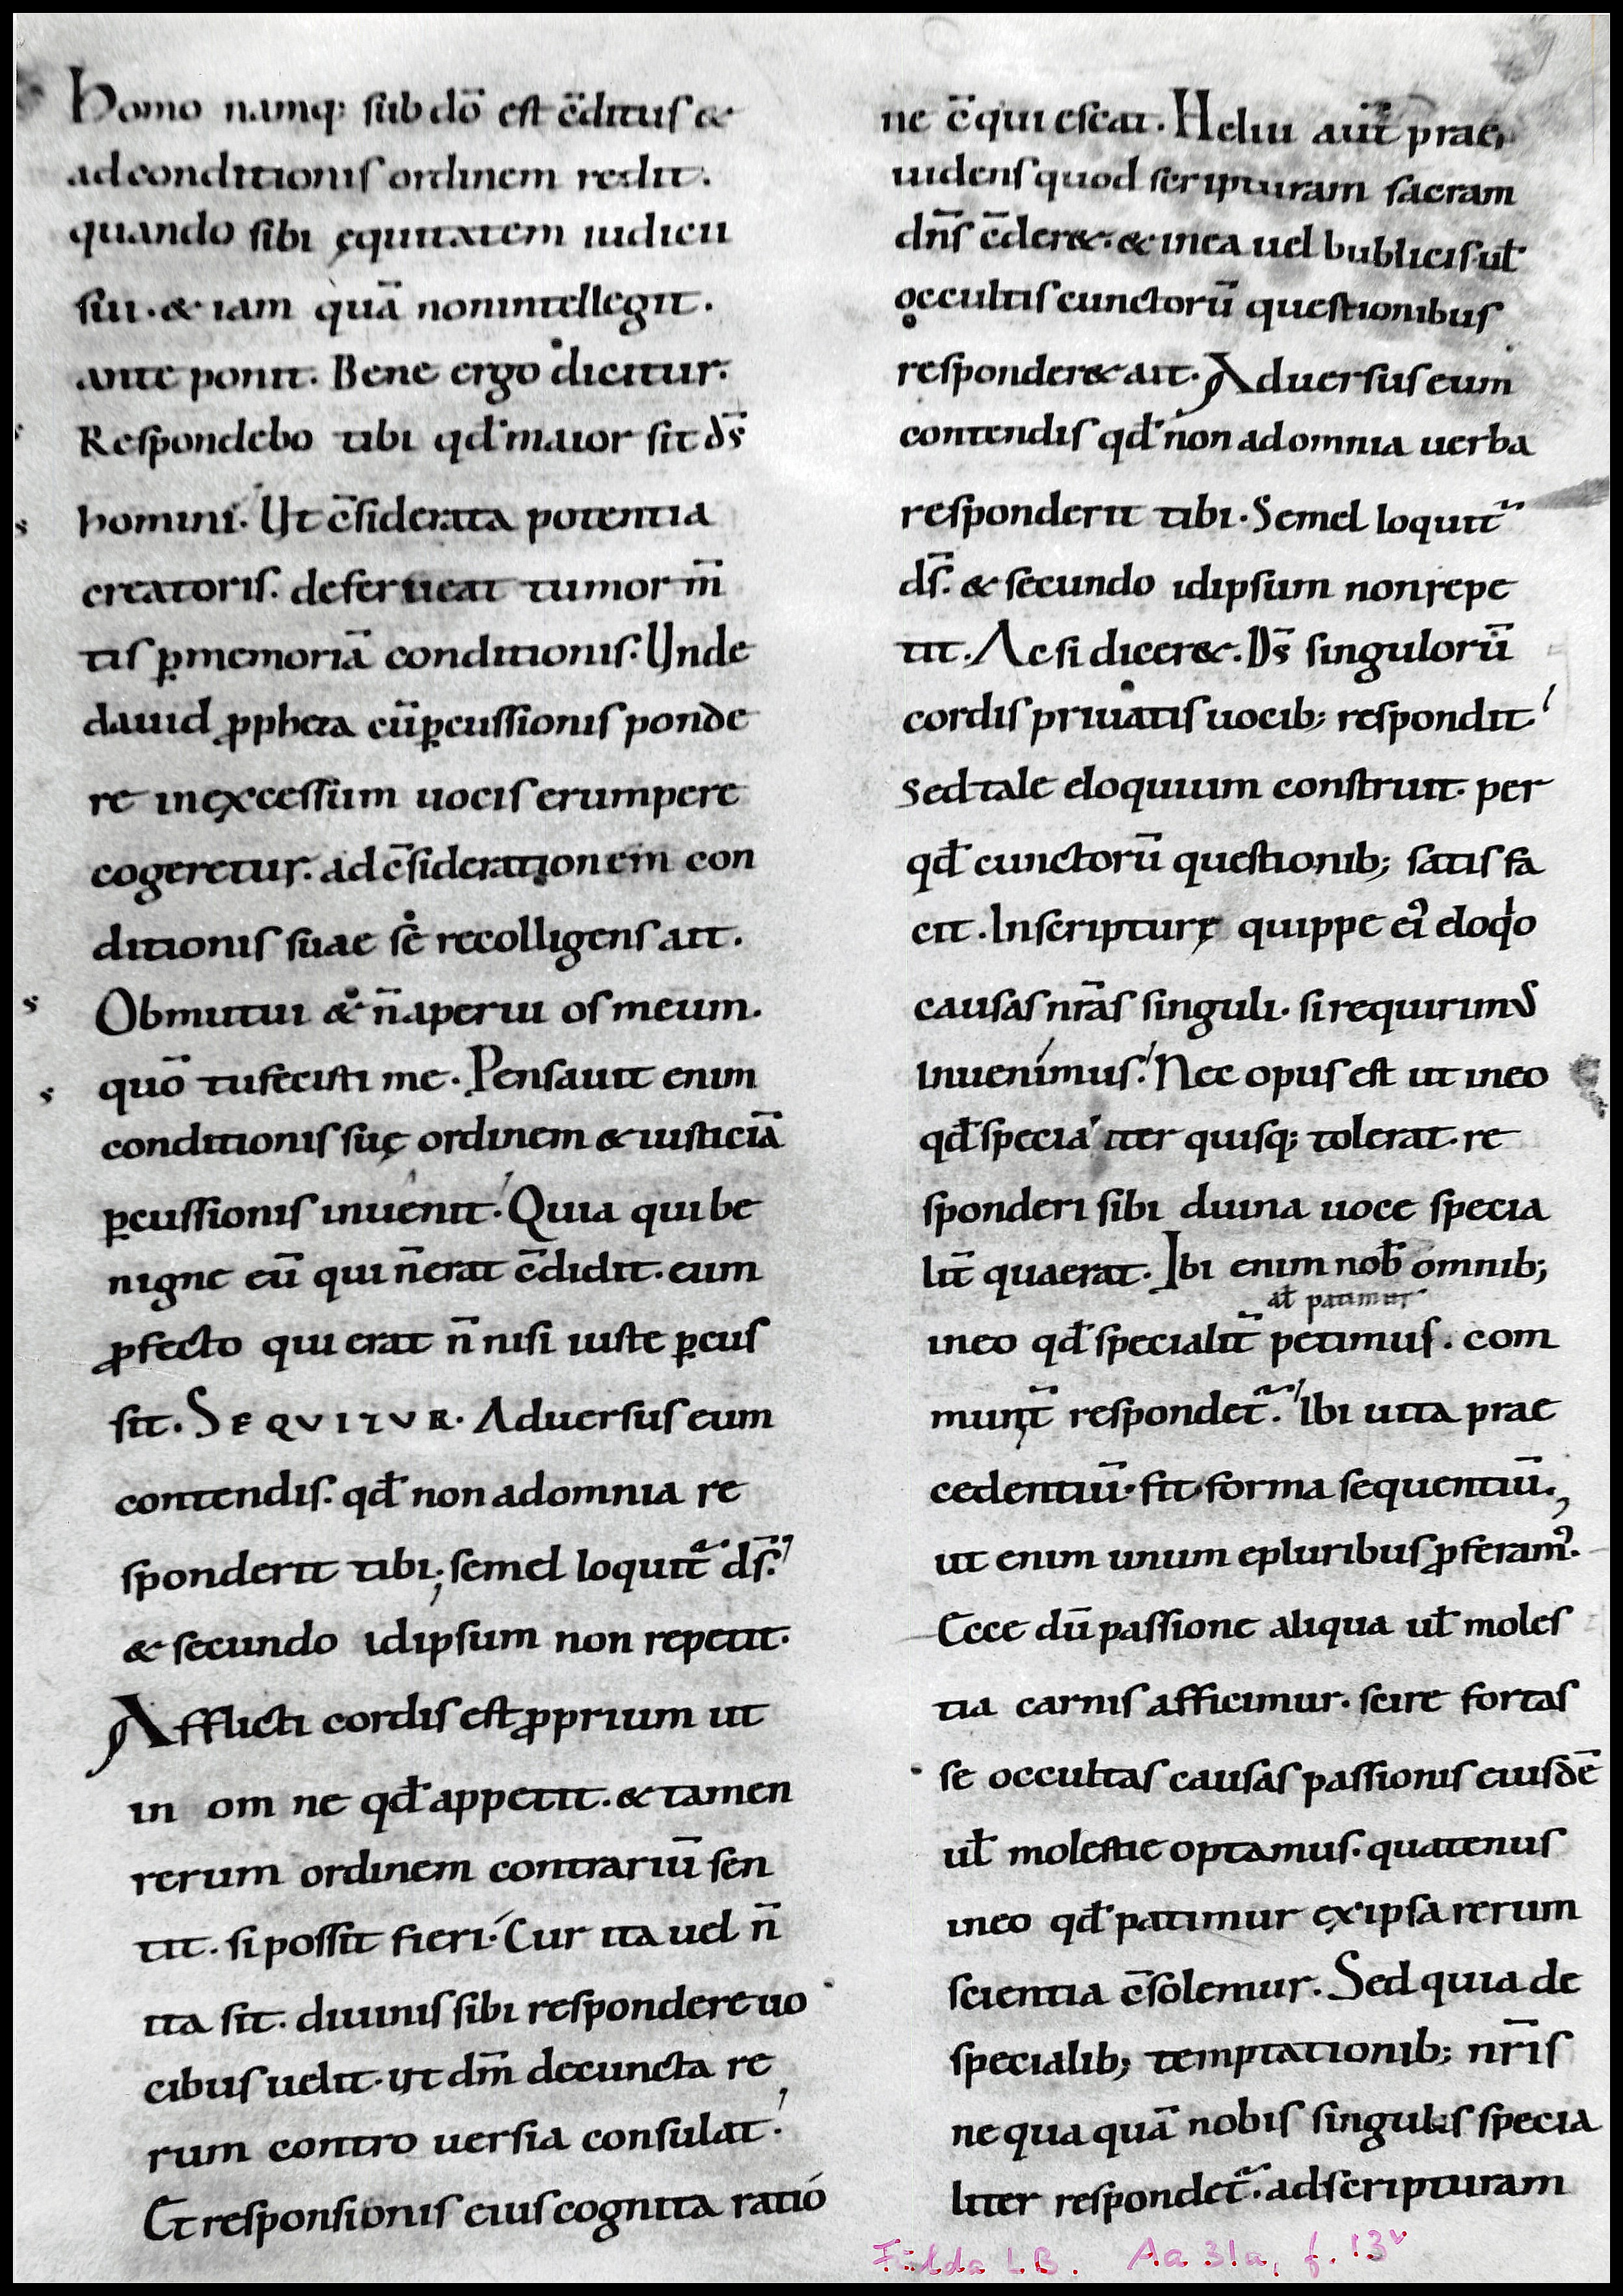 Homo namq; sub dō est c̄ditus &
ad conditionis ordinem redit.
quando sibi ęquitatem iudicii
sui. & iam quā non intellegit.
ante ponit. Bene ergo dicitur.
Respondebo tibi qđ maior sit ds̄
homini. Ut c̄siderata potentia
creatoris. deferueat tumor m̄
tis ꝑmemoriā conditionis. Unde
dauid ꝓpheta cū ꝑcussionis ponde
re in excessum uocis erumpere
cogeretur. ad c̄siderationem con
ditionis suae se recolligens ait.
Obmutui & n̄ aperui os meum.
quō tu fecisti me. Pensauit enim
conditionis suę ordinem & iusticiā
ꝑcussionis inuenit. Quia qui be
nigne eū qui n̄ erat c̄didit. eum
ꝓfecto qui erat n̄ nisi iuste ꝑcus
sit. SEQVITVR. Aduersus eum
contendis. qđ non ad omnia re
sponderit tibi; semel loquit̄ ds̄.
& secundo idipsum non repetit.
Afflicti cordis est ꝓprium ut
in om ne qđ appetit. & tamen
rerum ordinem contrariū sen
tit. si possit fieri. Cur ita uel n̄
ita sit. diuinis sibi respondere uo
cibus uelit. ut dm̄ de cuncta re
rum contro uersia consulat.
Et responsionis eius cognita ratió
ne c̄quiescat. Heliu aut̄ prae
uidens quod scripturam sacram
dn̄s c̄der&. & in ea uel bublicis. ul̄
occultis cunctorū questionibus
responder& ait. Aduersus eum
contendis qđ non ad omnia uerba
responderit tibi. Semel loquit̄
ds̄. & secundo idipsum non repe
tit. Ac si dicer&. Ds̄ singulorū
cordis priuatis uocib; respondit
sed tale eloquium construit. per
qđ cunctorū questionib; satis fa
cit. In scripturę quippe ei᾽ eloqo
causas nrās singuli. si requirim᾽
inuenimus. Nec opus est ut in eo
qđ specia iter quisq; tolerat. re
sponderi sibi diuina uoce specia
lit̄ quaerat. Ibi enim nob̄ omnib;
al̄ patimur
in eo qđ specialit̄ petimus. com
munit̄ respondet̄. Ibi uita prae
cedentiū. fit forma sequentiū.
ut enim unum e pluribus ꝓferam᾽.
Ecce dū passione aliqua ul̄ moles
tia carnis afficimur. scire fortas
se occultas causas passionis eiusdē
ul̄ molestie optamus. quatenus
in eo qđ patimur ex ipsa rerum
scientia c̄solemur. Sed quia de
specialib; temptationib; nr̄is
nequaquā nobis singulis specia
liter respondet̄. ad scripturam
Fulda LB. Aa 31a, f. 13v